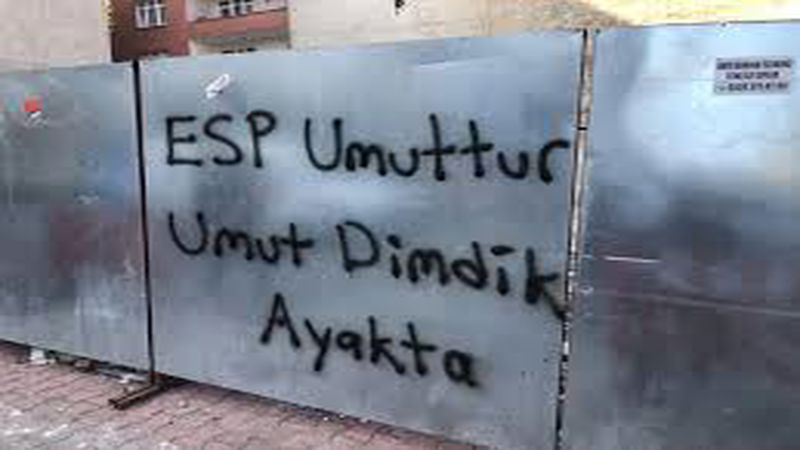 ESP Umuttur
Umut Dimdik
Ayakta